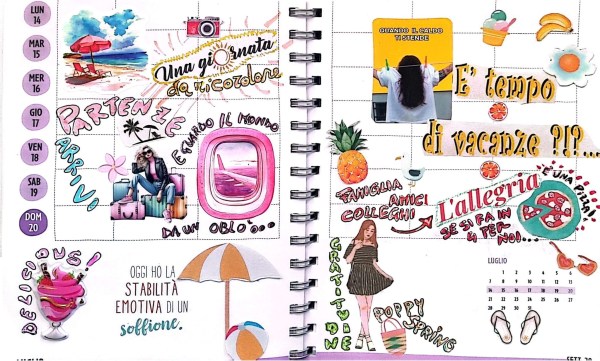 LUN
14
MAR
15
MER
16
GIO
17
VEN
18
SAB
19
DOM
20
Una giornata
da ricordare
PARTENZE
ARRIVI
E GUARDO IL MONDO
DA UN OBLÒ...
DELICIOUS!
OGGI HO LA
STABILITÀ
EMOTIVA DI UN
soffione.
QUANDO IL CALDO
TI STENDE
E' tempo
di vacanze ?!?...
FAMIGLIA
AMICI
COLLEGHI
L'allegria
SE SI FA IN
4 PER
NOI...
È UNA PIZZA!
GRATITUDINE
POPPY
SPRING
LUGLIO